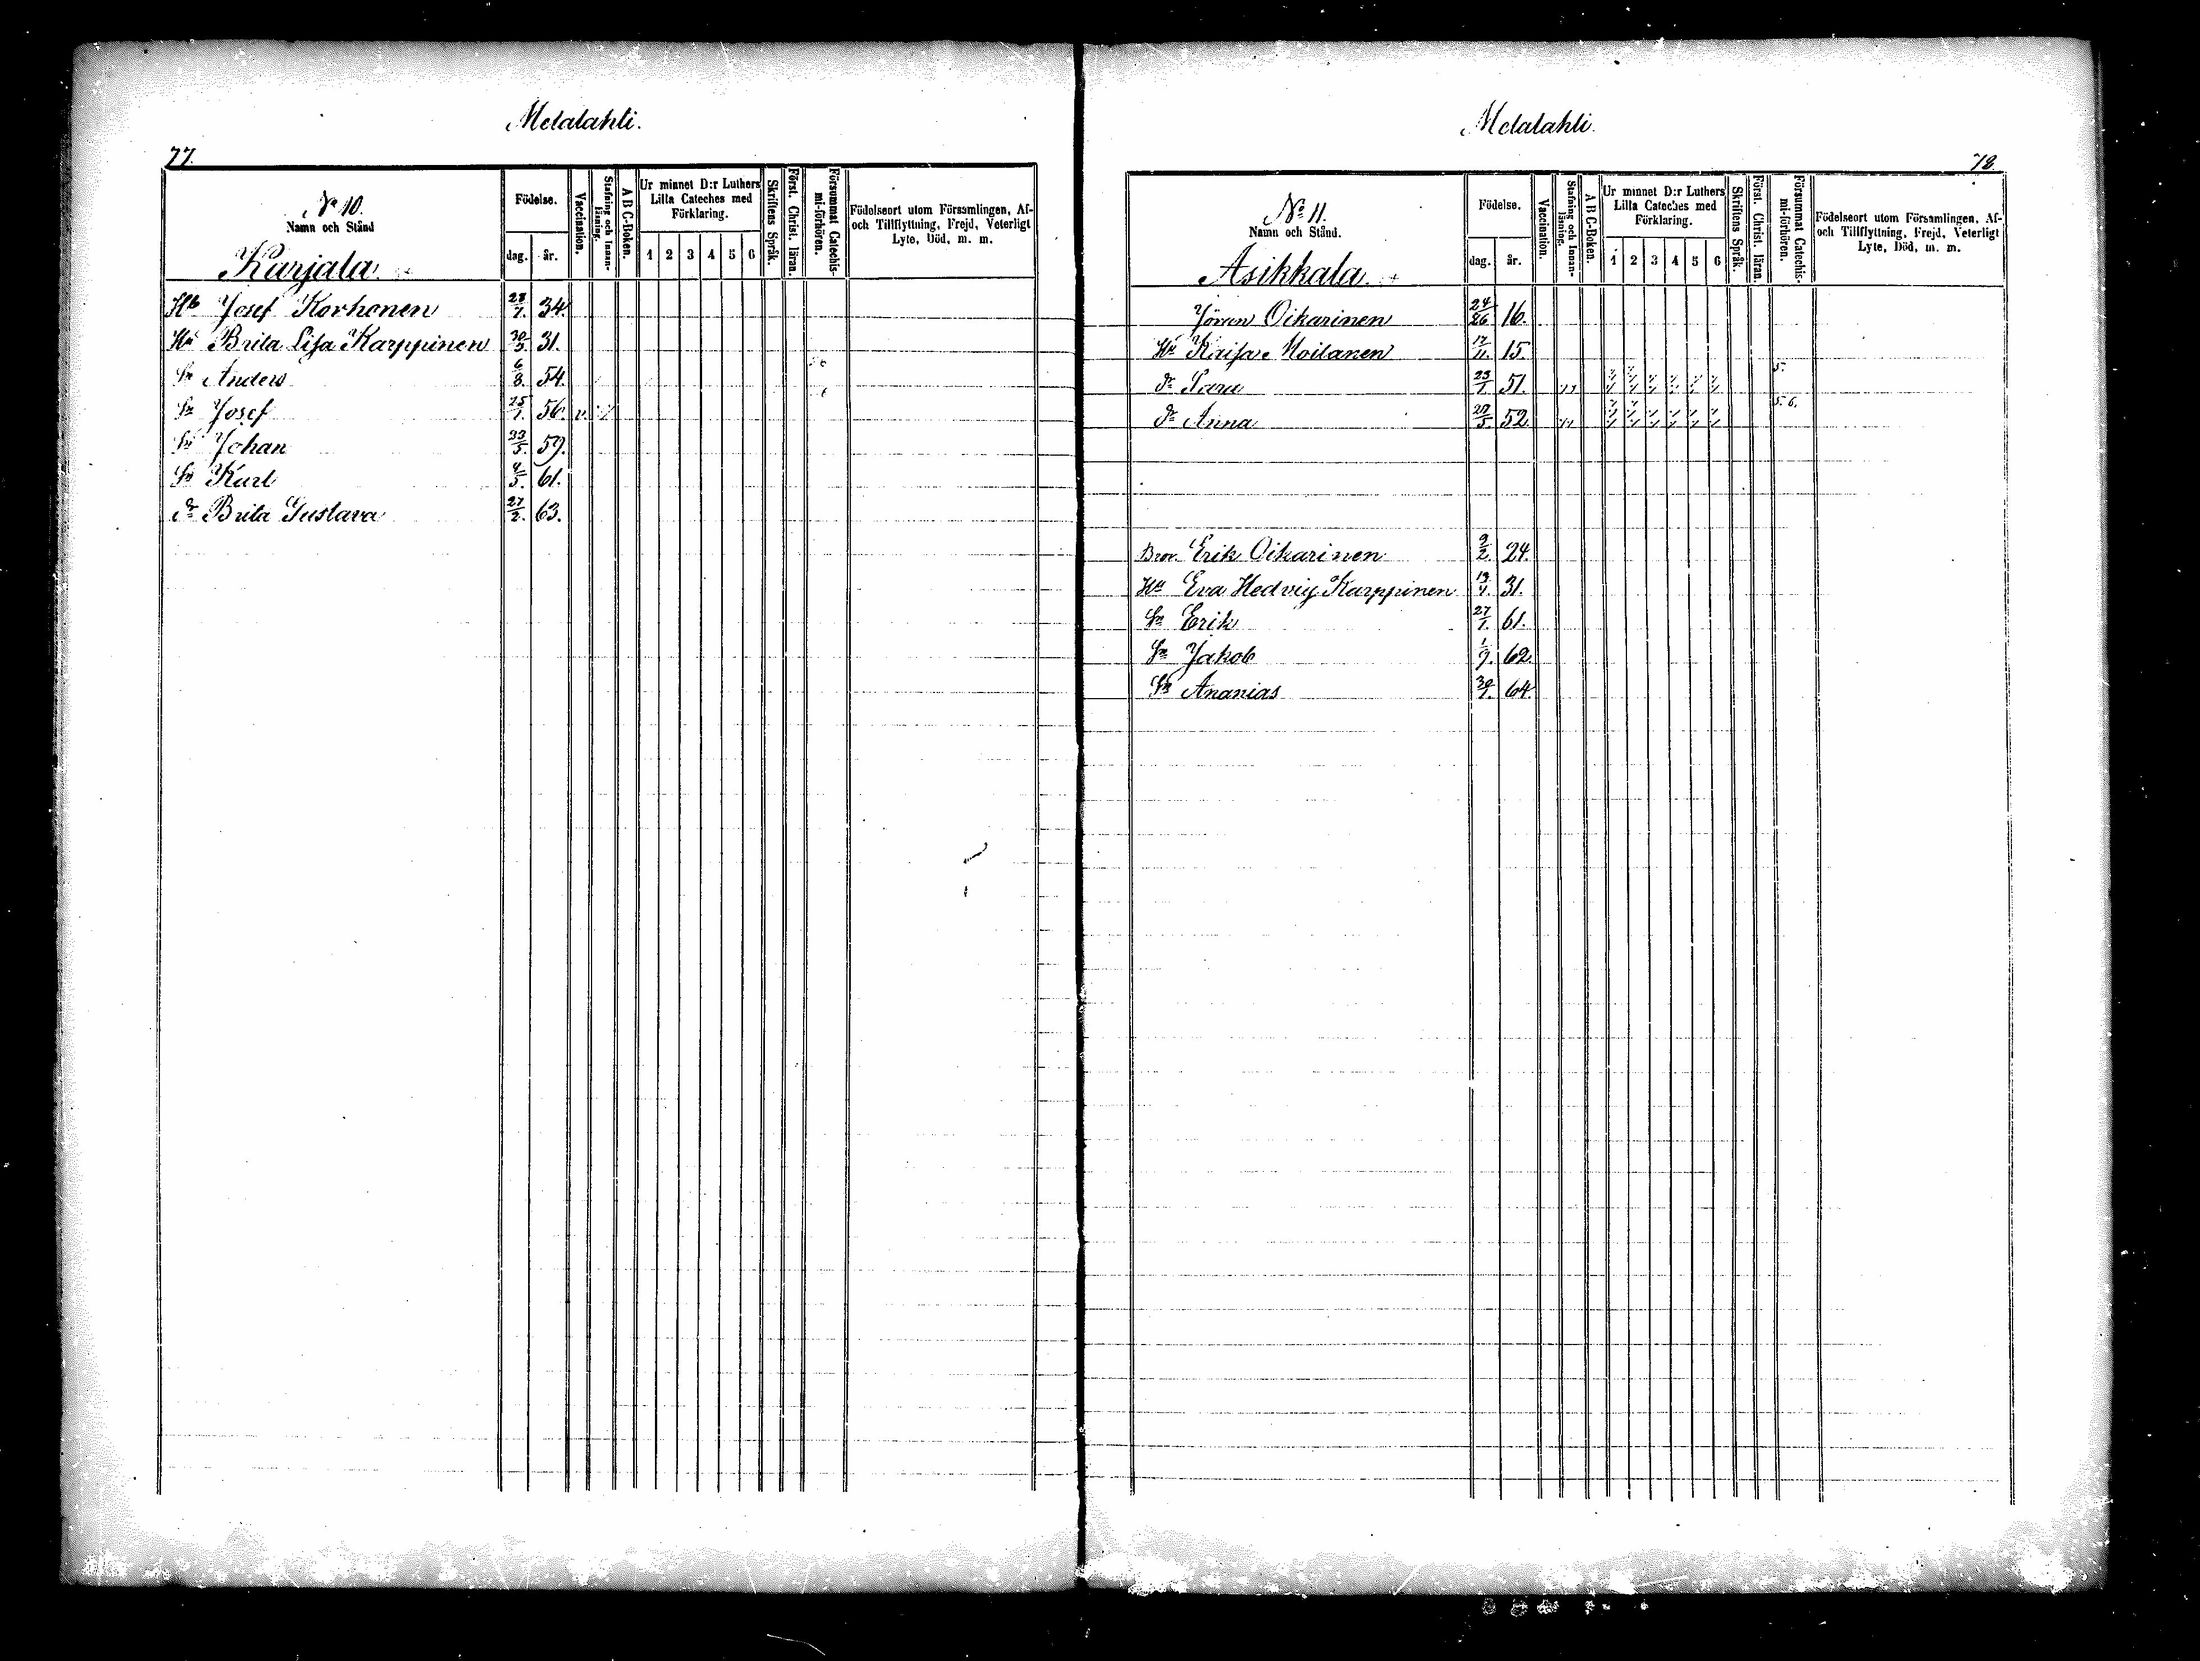 Metalahti.
77.
No 10.
Namn och Stånd
Karjala.
Födelse.
dag. år.
Vaccination.
Stafning och Innanläsning.
A B C-Boken.
Ur minnet D:r Luthers
Lilla Cateches med
Förklaring.
1 2 3 4 5 6
Skriftens Språk.
Först. Christ. läran.
Försummat Catechismi-förhören.
Födelseort utom Församlingen, Af-
och Tillflyttning, Frejd, Veterligt
Lyte, Död, m. m.
Hb Josef Korhonen 28/7. 34.
Hu Brita Lisa Karppinen 30/3. 31.
Sn Anders 6/8. 54.
Sn Josef 25/1. 56. v.
Sn Johan 23/5. 59.
Sn Karl 4/5. 61.
dr Brita Gustava 27/2. 63.
Metalahti.
78.
No 11.
Namn och Stånd.
Asikkala +
Födelse.
dag. år.
Vaccination.
Stafning och Innanläsning.
A B C-Boken.
Ur minnet D:r Luthers
Lilla Cateches med
Förklaring.
1 2 3 4 5 6
Skriftens Språk.
Först. Christ. läran
Försummat Catechismi-förhören.
Födelseort utom Församlingen, Af-
och Tillflyttning, Frejd, Veterligt
Lyte, Död, m. m.
Jöran Oikarinen 16.
Hu Kaisa Moilanen 17/11. 15.
dr Sara 23/1. 51. 5.
dr Anna 20/5. 52. 5. 6.
Bror. Erik Oikarinen 9/2. 24.
Hu Eva Hedvig Karppinen 31.
Sn Erik 27/1. 61.
Sn Jakob 1/9. 62.
Sn Ananias 30/1. 64.